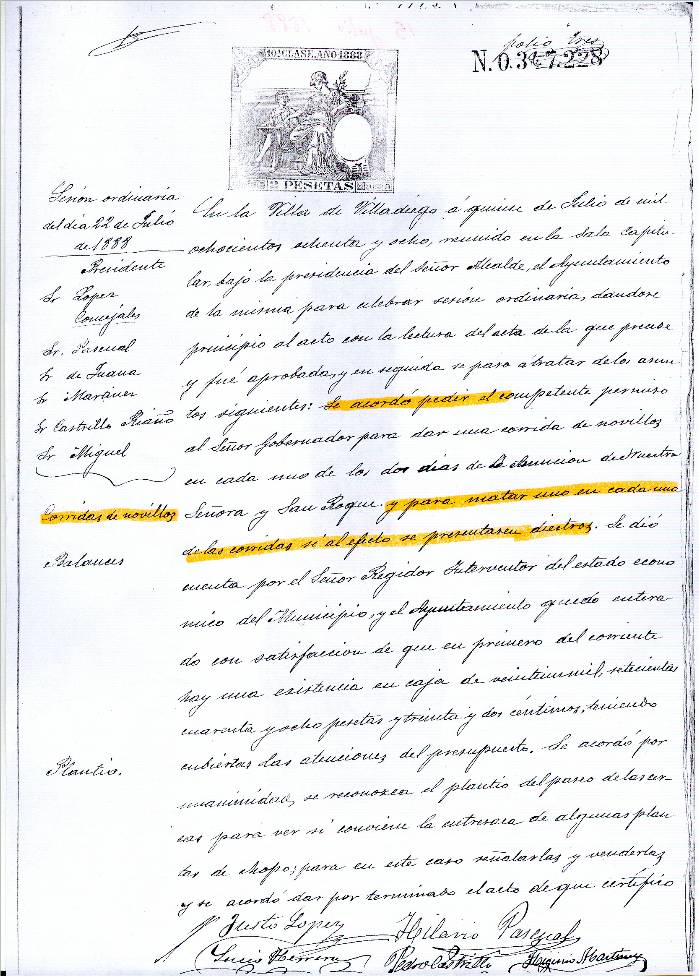 folio tres
10ª CLASE. AÑO 1888
N.0.347.228
2 PESETAS
Sesión ordinaria
del dia 22 de Julio
de 1888
Presidente
Sr Lopez
Concejales
Sr. Pascual
Sr de Juana
Sr Martinez
Sr Castrillo Riaño
Sr Miguel
Corridas de novillos
Balances
Plantio.
En la Villa de Villadiego á quince de Julio de mil
ochocientos ochenta y ocho, reunido en la Sala Capitu-
lar, bajo la presidencia del Señor Alcalde, el Ayuntamiento
de la misma para celebrar sesión ordinaria, dandose
principio al acto con la lectura del acta de la que precede
y fué aprobada, y en seguida se paso a tratar de los asun
tos siguientes: Se acordó peder el competente permiso
al Señor Gobernador para dar una corrida de novillos
en cada uno de los dos dias de la Asuncion de Nuestra
Señora y San Roque y para matar uno en cada una
de las corridas si al efecto se presentasen diestros. Se dió
cuenta por el Señor Regidor Interventor del estado econo
mico del Municipio, y el Ayuntamiento quedo entera-
do con satisfaccion de que en primero del corriente
hay una existencia en caja de veintiunmil, setecientas
cuarenta y ocho pesetas y treinta y dos céntimos, teniendo
cubiertas las atenciones del presupuesto. Se acordó por
unanimidad, se reconozca el plantio del paseo de las cer-
cas para ver si conviene la entresaca de algunas plan
tas de chopo; para en este caso señalarlas y venderlas
y se acordó dar por terminado el acto de que certifico
Justo Lopez
Hilario Pascual
Lucio Herrera
Pedro Castrillo
Higinio Martinez